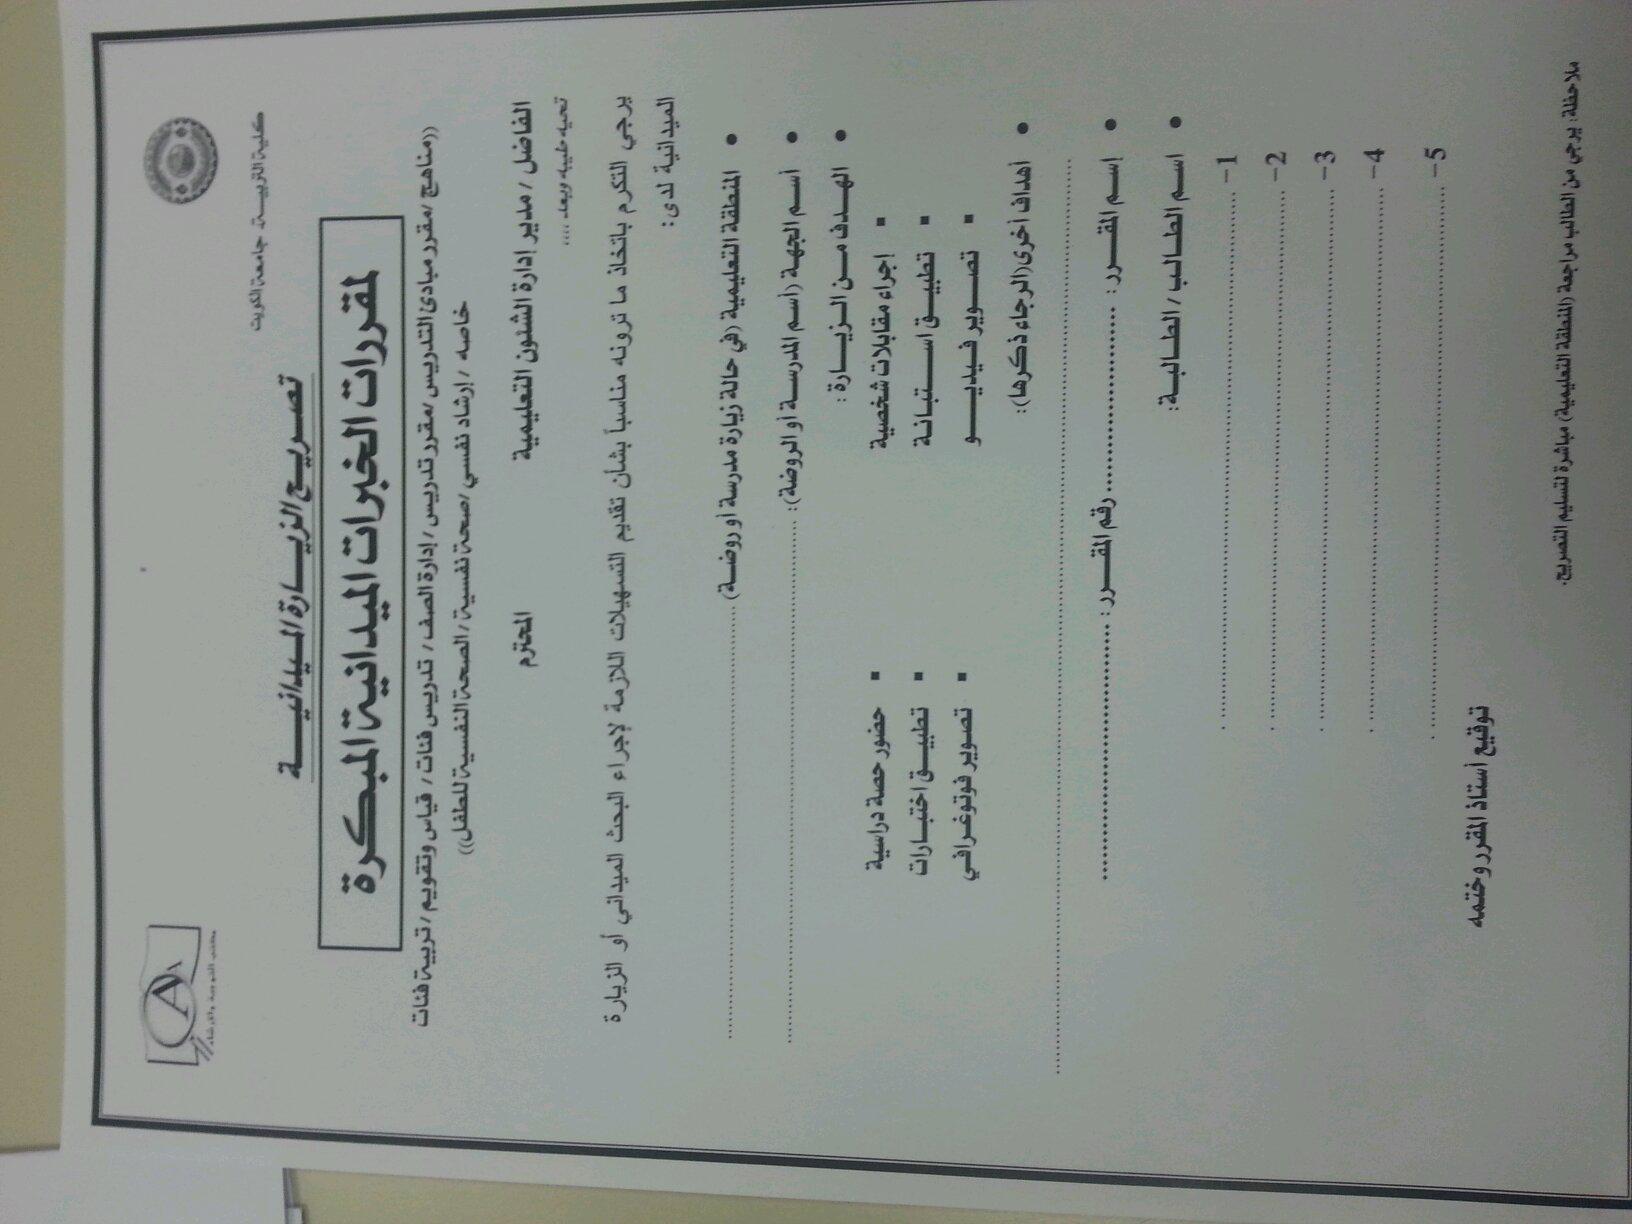 كلية التربية جامعة الكويت
تصريح الزيارة الميدانية
لمقررات الخبرات الميدانية المبكرة
((مناهج /مقرر مبادئ التدريس /مقرر تدريس / إدارة الصف / تدريس فئات / قياس وتقويم / تربية فئات
خاصه / إرشاد نفسي /صحة نفسية / الصحة النفسية للطفل))
الفاضل / مدير إدارة الشئون التعليمية المحترم
تحيه طيبه وبعد ....
يرجي التكرم باتخاذ ما ترونه مناسباً بشأن تقديم التسهيلات اللازمة لإجراء البحث الميداني أو الزيارة
الميدانية لدى :
• المنطقة التعليمية (في حالة زيارة مدرسة أو روضة) ..........................
• أسم الجهة (أسم المدرسة أو الروضة): ..........................
• الهدف من الزيارة :
▪ اجراء مقابلات شخصية ▪ حضور حصة دراسية
▪ تطبيق استبانة ▪ تطبيق اختبارات
▪ تصوير فيديو ▪ تصوير فوتوغرافي
• أهداف أخرى(الرجاء ذكرها):
..........................
• إسم المقرر : .......................... رقم المقرر : ..........................
• اسم الطالب / الطالبة:
1- ..........................
2- ..........................
3- ..........................
4- ..........................
5- ..........................
توقيع أستاذ المقرر وختمه
ملاحظة: يرجي من الطالب مراجعة (المنطقة التعليمية) مباشرة لتسليم التصريح.